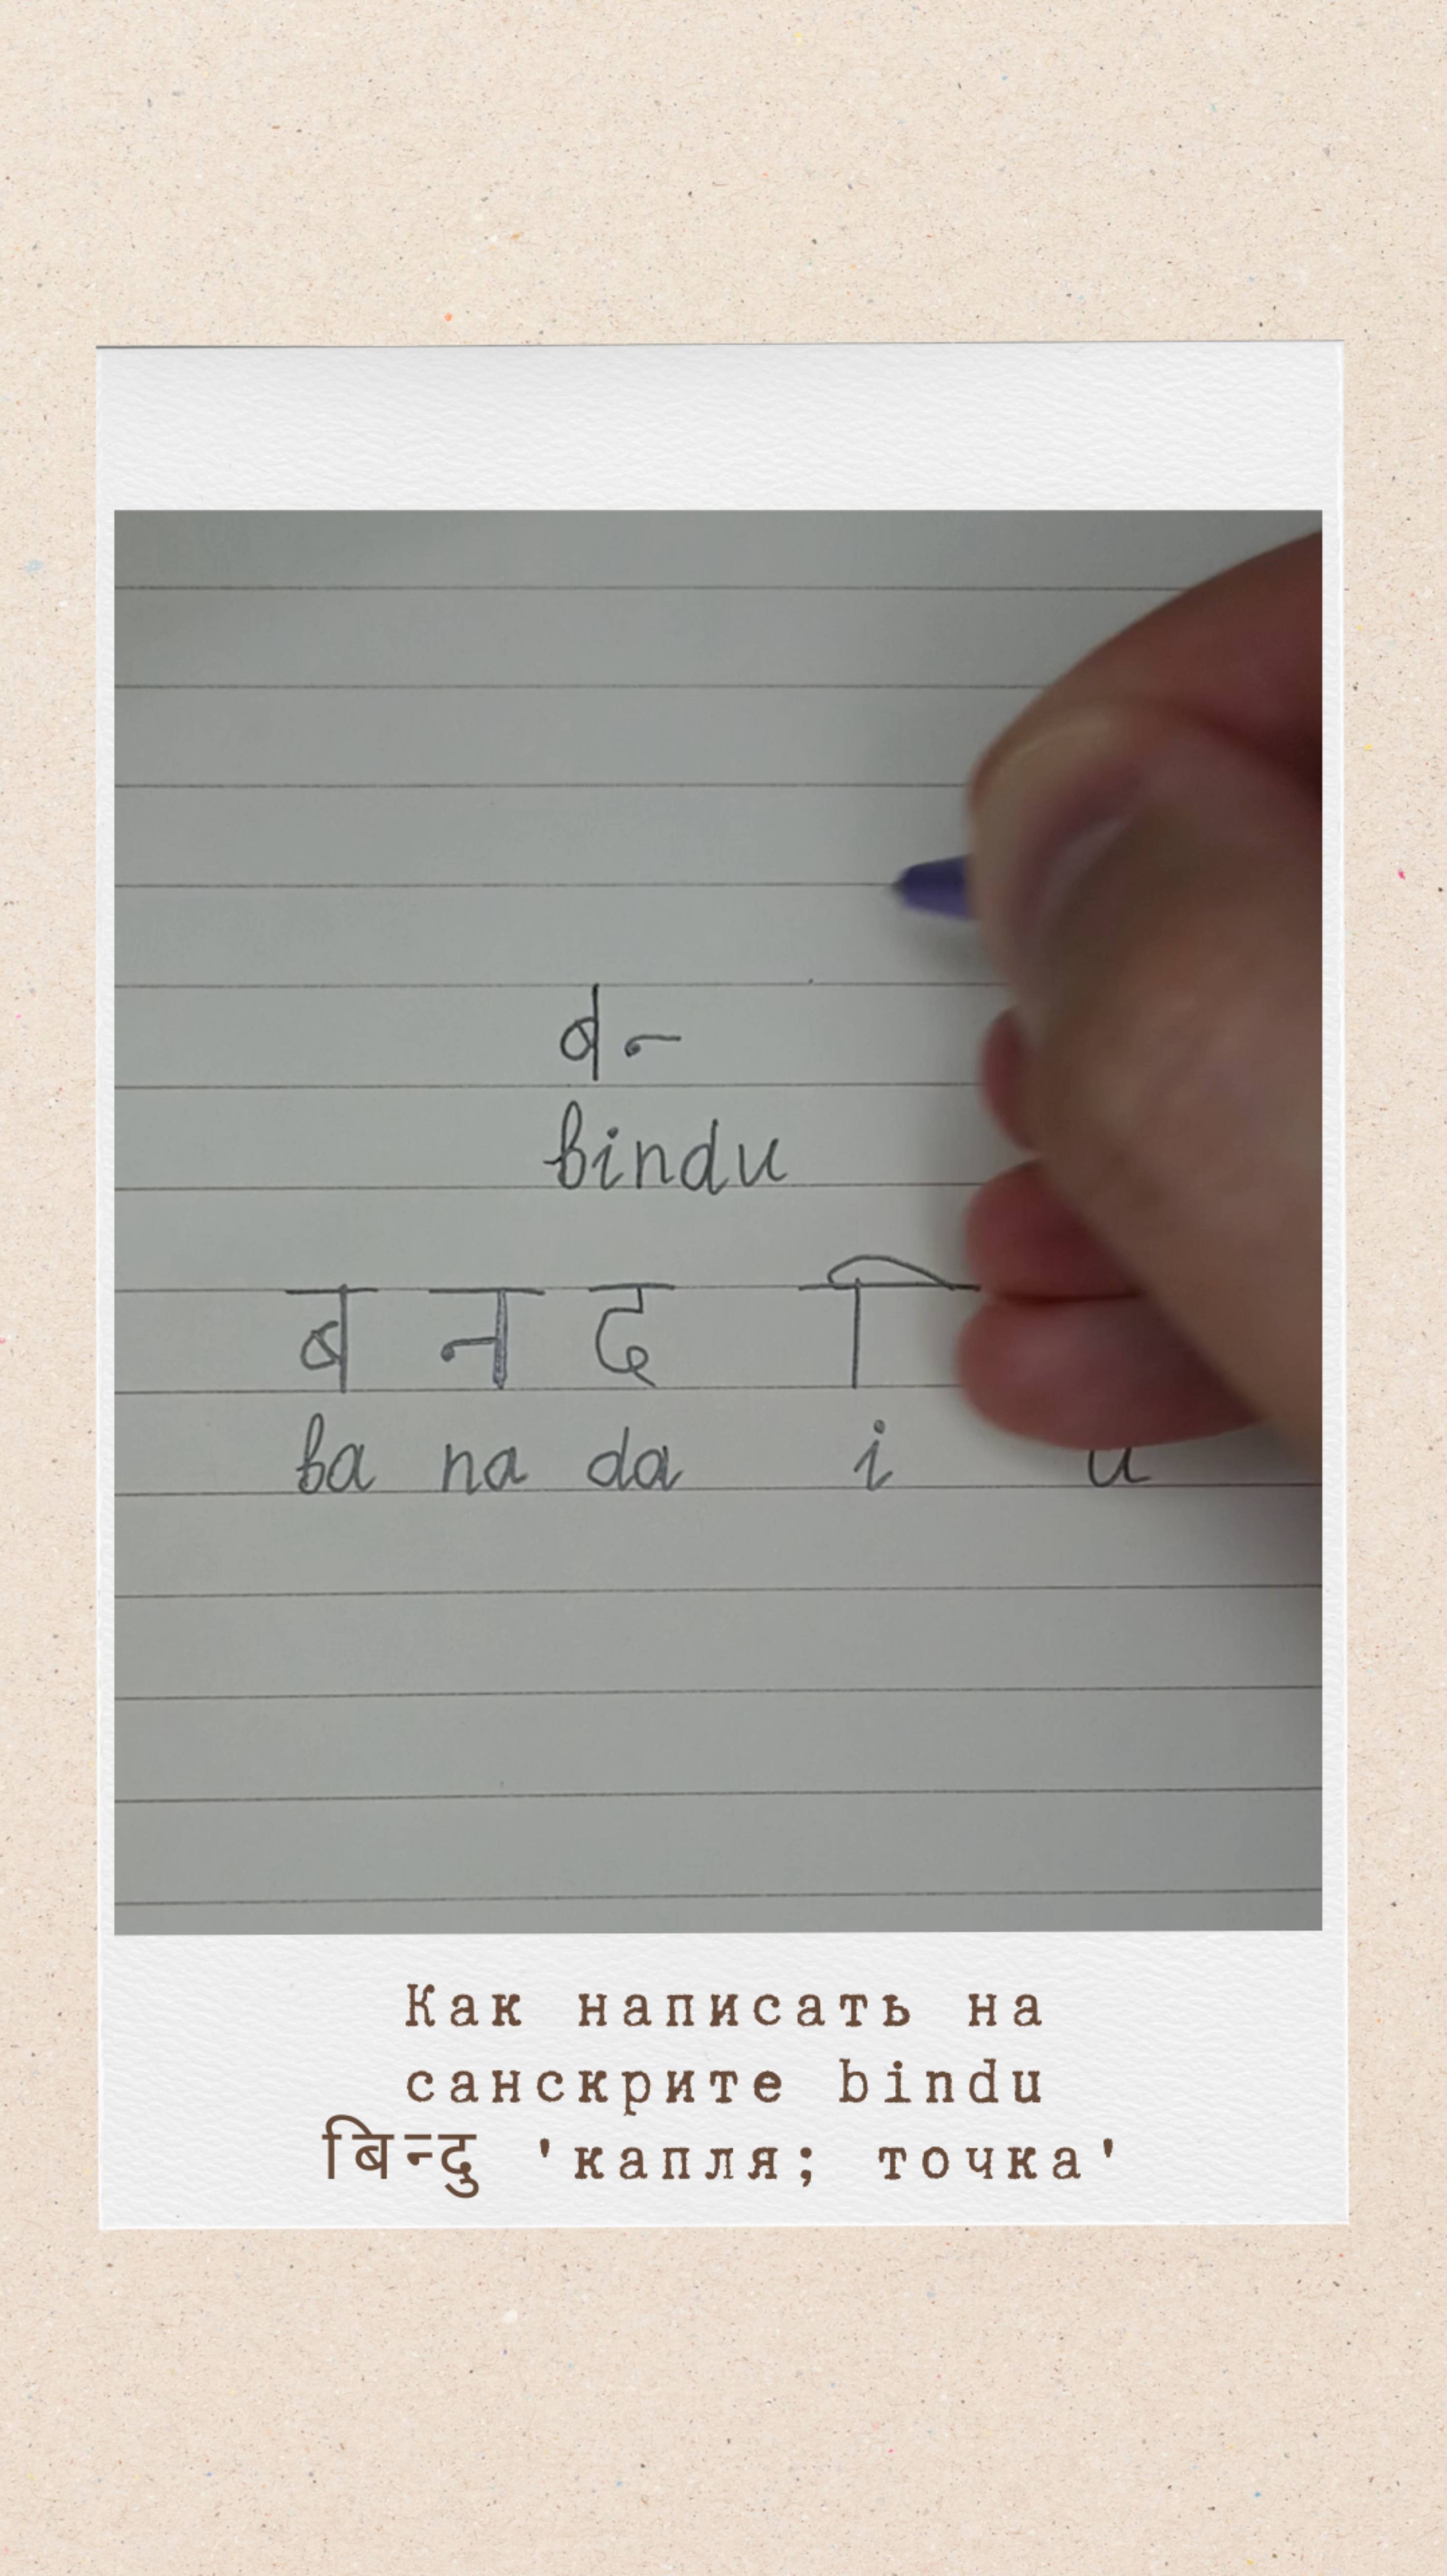 ब न्
bindu
ब न द ि
ba na da i u
Как написать на
санскрите bindu
बिन्दु 'капля; точка'